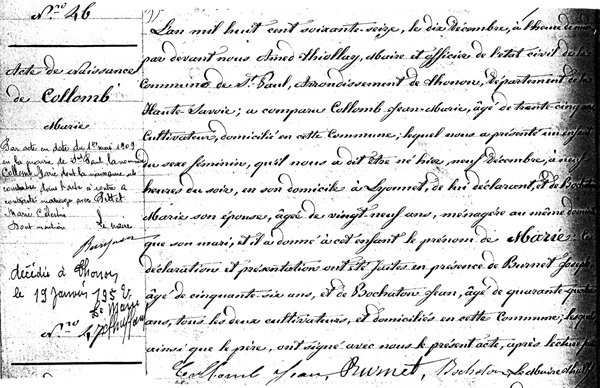 Nro 46
Acte de Naissance
de Collomb
Marie
Par acte en date du 1er mai 1909
en la mairie de St Paul la nommée
Collomb Marie dont la naissance est
constatée dans l'acte ci contre a
contracté mariage avec Pittet
Marie Célestin
Dont mention Le maire
décédée à Thonon
le 19 Janvier 195
Le Maire
Nro 4
L'an mil huit cent soixante-seize, le dix Décembre, à l'heure de midi,
par devant nous Amed Thiollay, Maire et officier de l'état civil de la
Commune de St Paul, Arrondissement de Thonon, département de la
Haute-Savoie; a comparu Collomb Jean-Marie, âgé de trente-cinq ans
Cultivateur, domicilié en cette Commune; lequel nous a présenté un enfant
du sexe féminin, qu'il nous a dit être né hier, neuf Décembre, à neuf
heures du soir, en son domicile à Lyonnet, de lui déclarant, et de Bochaton
Marie son épouse, âgée de vingt neuf ans, ménagère au même domicile
que son mari, et il a donné à cet enfant le prénom de Marie. Ces
déclaration et présentation ont été faites en présence de Burnet Joseph,
âgé de cinquante-six ans, et de Bochaton Jean, âgé de quarante-quatre
ans, tous les deux cultivateurs, et domiciliés en cette Commune; lesquels
ainsi que le père, ont signé avec nous le présent acte, après lecture faite
Collomb Jean, Burnet, Bochaton Le Maire Thiollay